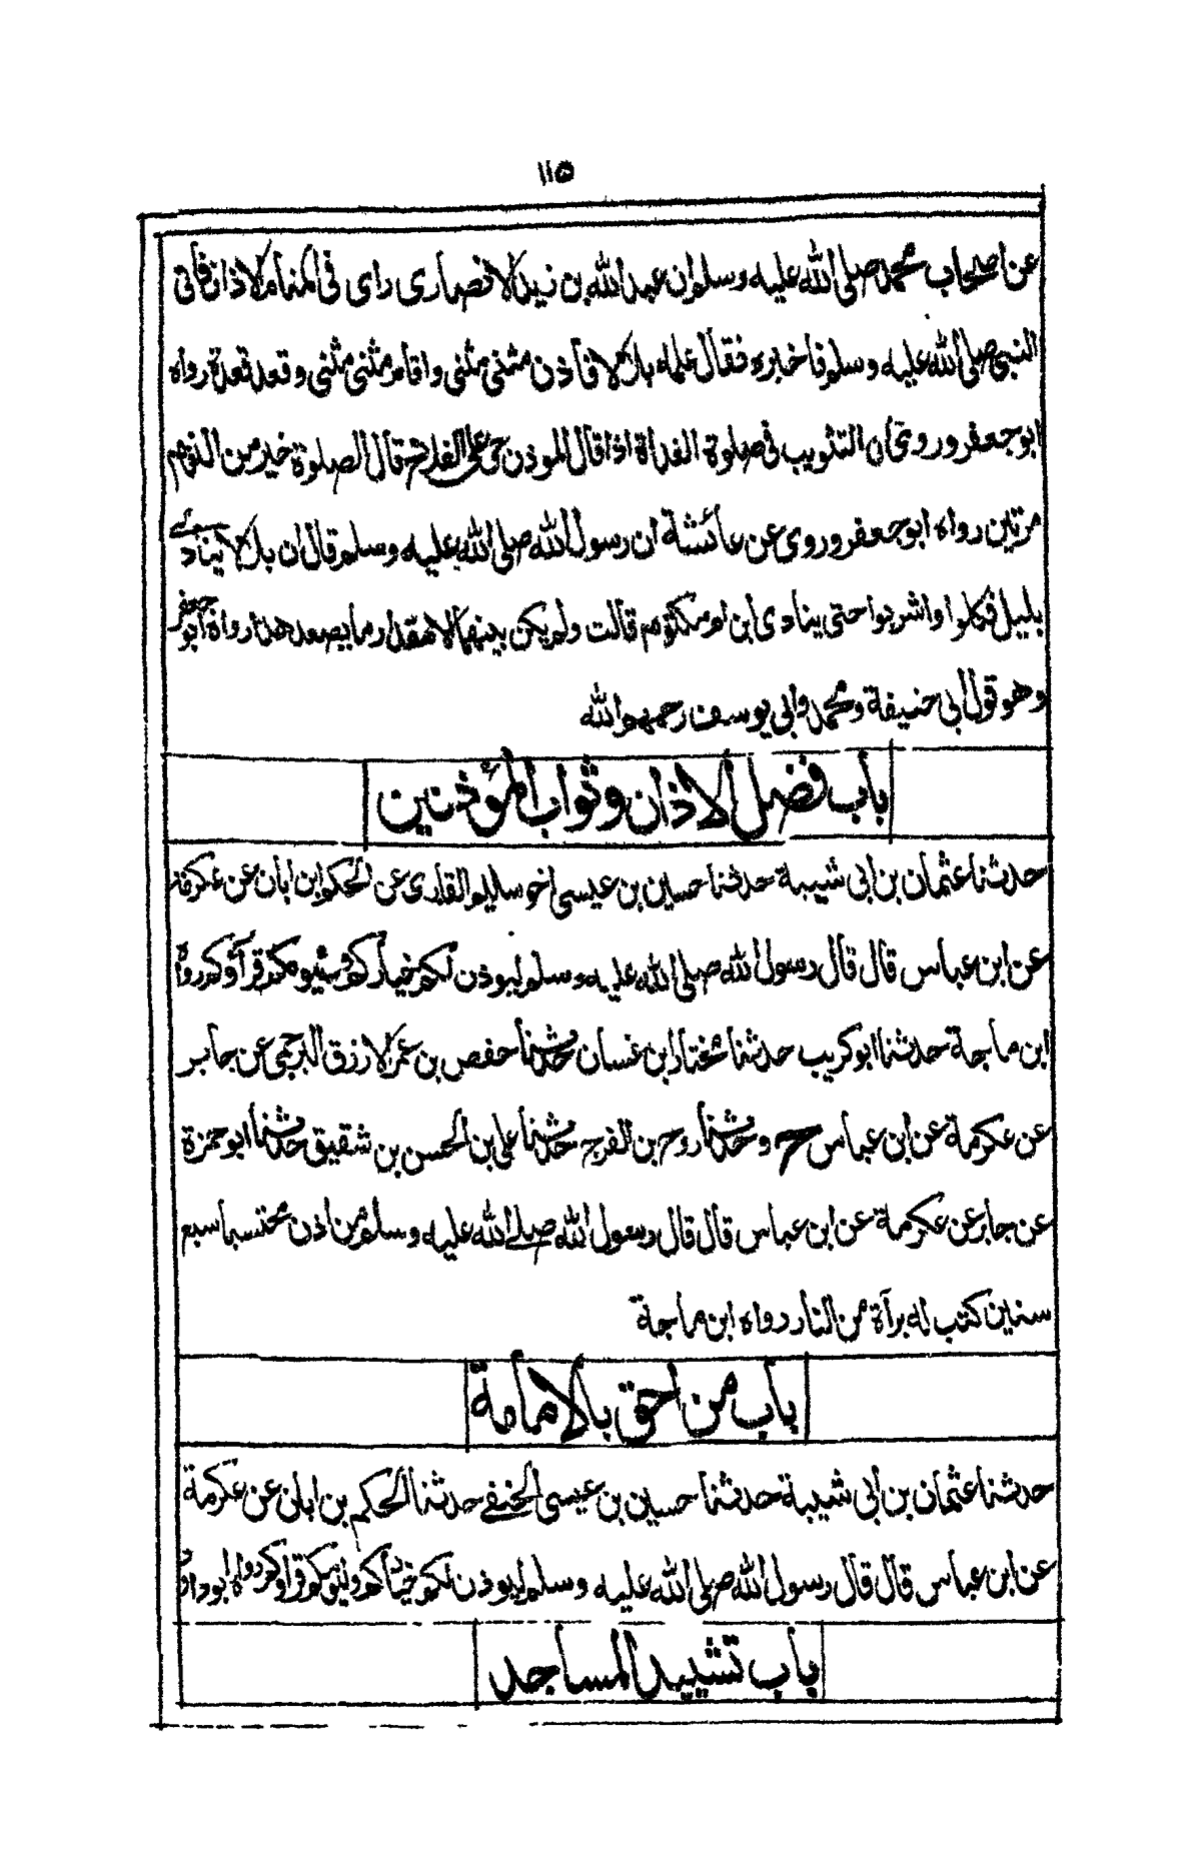 ١١٥
عن اصحاب محمد صلى الله عليه وسلم ان عبد الله بن زيد الانصاري راى في المنام الاذان فاتى
النبي صلى الله عليه وسلم فاخبره فقال علمه بلالا فأذن مثنى مثنى واقام مثنى مثنى وقعد قعدة رواه
ابو جعفر وروى ان التثويب في صلوة الغداة اذا قال الموذن حي على الفلاح قال الصلوة خير من النوم
مرتين رواه ابو جعفر وروى عن عائشة ان رسول الله صلى الله عليه وسلم قال ان بلالا ينادي
بليل فكلوا واشربوا حتى ينادى ابن ام مكتوم قالت ولم يكن بينهما الا مقدار ما يصعد هذا رواه ابو جعفر
وهو قول ابي حنيفة ومحمد وابي يوسف رحمهم الله
باب فضل الاذان وثواب المؤذنين
حدثنا عثمان بن ابي شيبة حدثنا حسين بن عيسى اخو سليم القارى عن الحكم ابن ابان عن عكرمة
عن ابن عباس قال قال رسول الله صلى الله عليه وسلم ليوذن لكم خياركم وليؤمكم قرآؤكم رواه
ابن ماجة حدثنا ابو كريب حدثنا مختار ابن غسان حدثنا حفص بن عمر الازرق البرجمي عن جابر
عن عكرمة عن ابن عباس ح وحدثنا روح بن الفرج حدثنا علي بن الحسن بن شقيق حدثنا ابو حمزة
عن جابر عن عكرمة عن ابن عباس قال قال رسول الله صلى الله عليه وسلم من اذن محتسبا سبع
سنين كتب له برآة من النار رواه ابن ماجة
باب من احق بالامامة
حدثنا عثمان بن ابي شيبة حدثنا حسين بن عيسى الحنفي حدثنا الحكم بن ابان عن عكرمة
عن ابن عباس قال قال رسول الله صلى الله عليه وسلم ليوذن لكم خياركم وليؤمكم قراوكم رواه ابو داود
باب تشييد المساجد